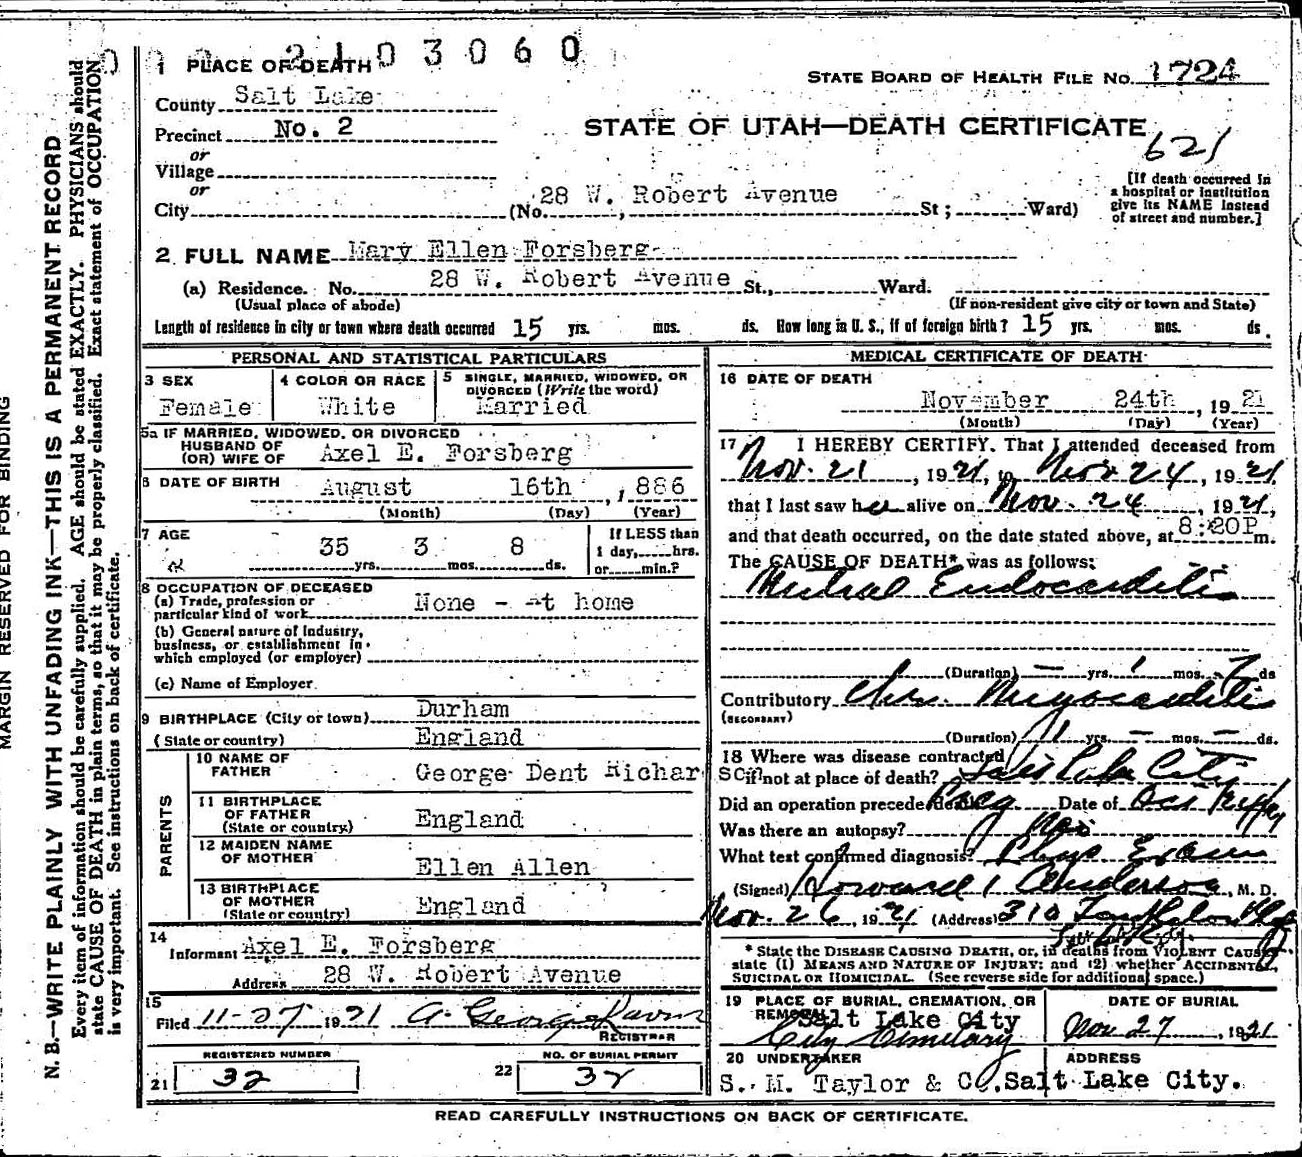 2103060
1 PLACE OF DEATH
STATE BOARD OF HEALTH FILE No. 1724
County Salt Lake
Precinct No. 2
STATE OF UTAH—DEATH CERTIFICATE
621
or
Village
or
City (No. 28 W. Robert Avenue St; Ward)
[If death occurred in
a hospital or institution
give its NAME instead
of street and number.]
2 FULL NAME Mary Ellen Forsberg
(a) Residence. No. 28 W. Robert Avenue St., Ward.
(Usual place of abode) (If non-resident give city or town and State)
Length of residence in city or town where death occurred 15 yrs. mos. ds. How long in U. S., if of foreign birth? 15 yrs. mos. ds.
PERSONAL AND STATISTICAL PARTICULARS
3 SEX
Female
4 COLOR OR RACE
White
5 SINGLE, MARRIED, WIDOWED, OR
DIVORCED (Write the word)
Married
5a IF MARRIED, WIDOWED, OR DIVORCED
HUSBAND OF
(OR) WIFE OF Axel E. Forsberg
6 DATE OF BIRTH August 16th, 1886
(Month) (Day) (Year)
7 AGE
35 yrs. 3 mos. 8 ds.
If LESS than
1 day, hrs.
or min.?
8 OCCUPATION OF DECEASED
(a) Trade, profession or
particular kind of work None - At home
(b) General nature of Industry,
business, or establishment in
which employed (or employer)
(c) Name of Employer
9 BIRTHPLACE (City or town) Durham
(State or country) England
PARENTS
10 NAME OF
FATHER George Dent Richar
11 BIRTHPLACE
OF FATHER
(State or country) England
12 MAIDEN NAME
OF MOTHER Ellen Allen
13 BIRTHPLACE
OF MOTHER
(State or country) England
14
Informant Axel E. Forsberg
Address 28 W. Robert Avenue
15
Filed 11-27 1921 A. George
REGISTRAR
REGISTERED NUMBER
21 32
NO. OF BURIAL PERMIT
22 32
MEDICAL CERTIFICATE OF DEATH
16 DATE OF DEATH
November 24th, 1921
(Month) (Day) (Year)
17 I HEREBY CERTIFY. That I attended deceased from
Nov. 21, 1921, to Nov 24, 1921
that I last saw her alive on Nov. 24, 1921,
and that death occurred, on the date stated above, at 8:20P m.
The CAUSE OF DEATH* was as follows:
Mitral Endocarditis
(Duration) — yrs. 1 mos. 7 ds
Contributory Chr. Myocarditis
(SECONDARY)
(Duration) yrs. — mos. — ds.
18 Where was disease contracted
son
if not at place of death? Salt Lake City
Did an operation precede death? Date of
Was there an autopsy? no
What test confirmed diagnosis? Phys Exam
(Signed) Howard Anderson, M. D.
Nov. 26, 1921 (Address) 310
* State the DISEASE CAUSING DEATH, or, in deaths from VIOLENT CAUSES
state (1) MEANS AND NATURE OF INJURY; and (2) whether ACCIDENTAL,
SUICIDAL OR HOMICIDAL. (See reverse side for additional space.)
19 PLACE OF BURIAL, CREMATION, OR
REMOVAL
Salt Lake City
City Cemetary
DATE OF BURIAL
Nov 27, 1921
20 UNDERTAKER
S. M. Taylor & Co.
ADDRESS
Salt Lake City.
READ CAREFULLY INSTRUCTIONS ON BACK OF CERTIFICATE.
MARGIN RESERVED FOR BINDING
N. B.—WRITE PLAINLY WITH UNFADING INK—THIS IS A PERMANENT RECORD
Every item of information should be carefully supplied. AGE should be stated EXACTLY. PHYSICIANS should
state CAUSE OF DEATH in plain terms, so that it may be properly classified. Exact statement of OCCUPATION
is very important. See instructions on back of certificate.